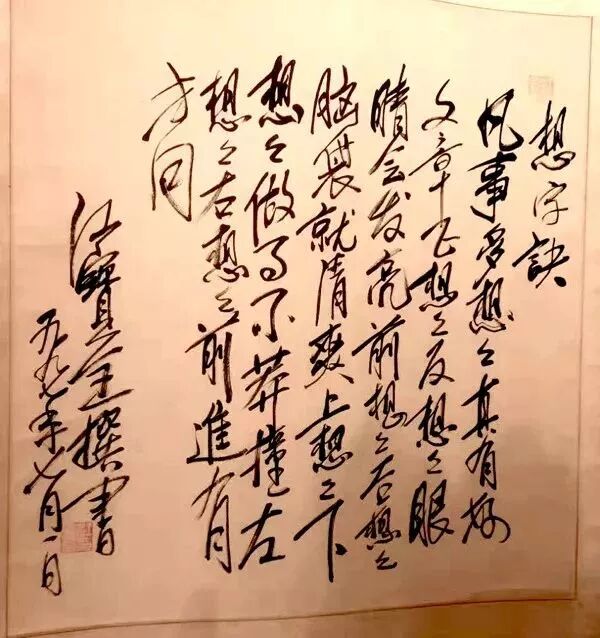 想字訣
凡事多想々真有好
文章正想々反想々眼
睛会发亮前想々后想々
脑袋就清爽上想々下
想々做事不莽撞左
想々右想々前進有
方向
江寶全撰書
一九九七年七月一日